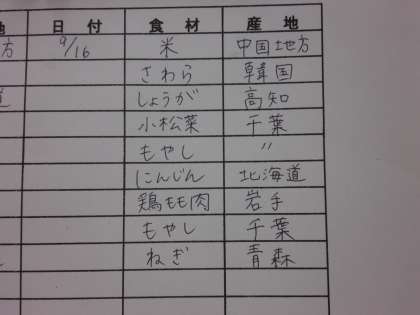 地 日付 食材 産地
方 9/16 米 中国地方
さわら 韓国
道 しょうが 高知
小松菜 千葉
もやし 〃
にんじん 北海道
鶏もも肉 岩手
もやし 千葉
ねぎ 青森